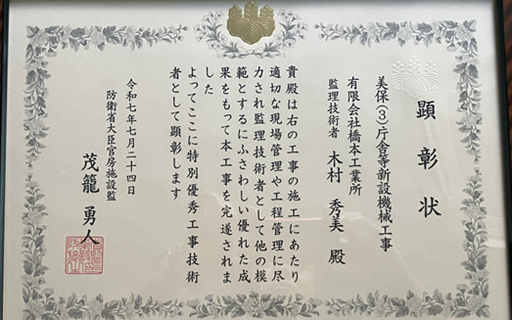 顕彰状
美保(3)庁舎等新設機械工事
有限会社橋本工業所
監理技術者 木村 秀美 殿
貴殿は右の工事の施工にあたり
適切な現場管理や工程管理に尽
力され監理技術者として他の模
範とするにふさわしい優れた成
果をもって本工事を完遂されま
した
よってここに特別優秀工事技術
者として顕彰します
令和七年七月二十四日
防衛省大臣官房施設監
茂籠 勇人